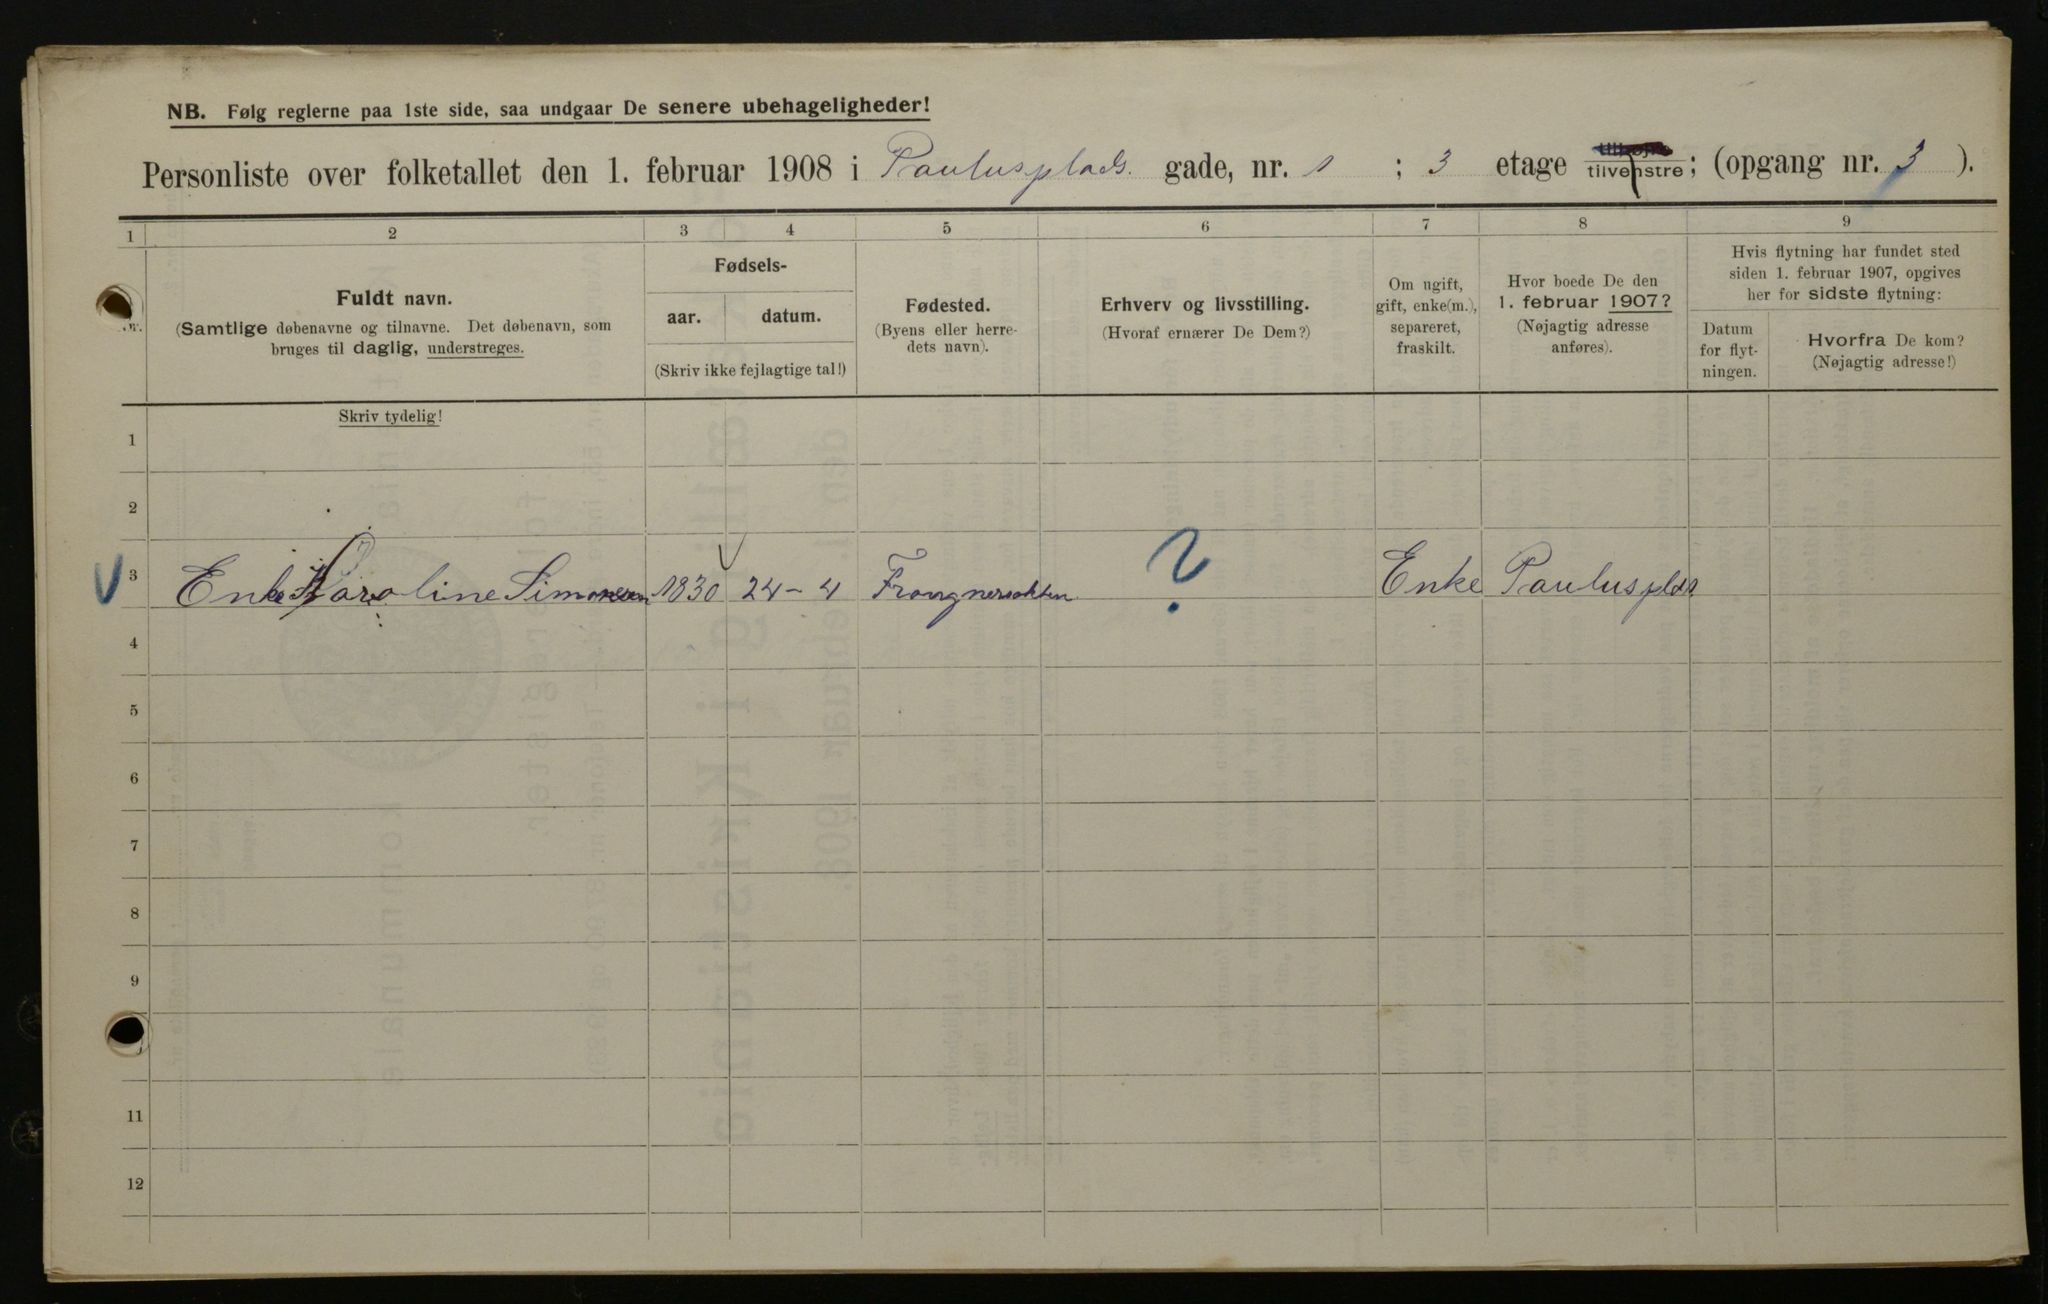 NB. Følg reglerne paa 1ste side, saa undgaar De senere ubehageligheder!
Personliste over folketallet den 1. februar 1908 i Paulusplads. gade, nr. 1 ; 3 etage tilvenstre; (opgang nr. 3 ).
1 2 3 4 5 6 7 8 9
Fuldt navn.
(Samtlige døbenavne og tilnavne. Det døbenavn, som
bruges til daglig, understreges.
Fødsels-
aar. datum.
(Skriv ikke fejlagtige tal!)
Fødested.
(Byens eller herre-
dets navn).
Erhverv og livsstilling.
(Hvoraf ernærer De Dem?)
Om ugift,
gift, enke(m.),
separeret,
fraskilt.
Hvor boede De den
1. februar 1907?
(Nøjagtig adresse
anføres).
Hvis flytning har fundet sted
siden 1. februar 1907, opgives
her for sidste flytning:
Datum
for flyt-
ningen.
Hvorfra De kom?
(Nøjagtig adresse!)
Skriv tydelig!
1
2
3 Enke Karoline Simonsen 1830 24-4 ? Enke Paulusplds.
4
5
6
7
8
9
11
12